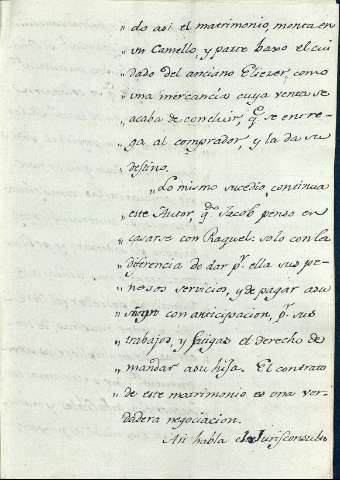 „ do asi el matrimonio, monta en
„ un Camello, y parte baxo el cui
„ dado del anciano Eliecer, como
„ una mercancia cuya venta se
„ acaba de concluir, q.e se entre-
„ ga al comprador, y la da su
„ destino.
„ Lo mismo sucedio, continua
„ este Autor, q.do Jacob penso en
„ casarse con Raquel: solo con la
„ diferencia de dar p.r ella sus pe-
„ nosos servicios, y de pagar a su
„ suegro con anticipacion, p.r sus
„ trabajos, y fatigas el derecho de
„ mandar a su hija. El contrato
„ de este matrimonio es una ver-
„ dadera negociacion.
Asi habla el Jurisconsulto